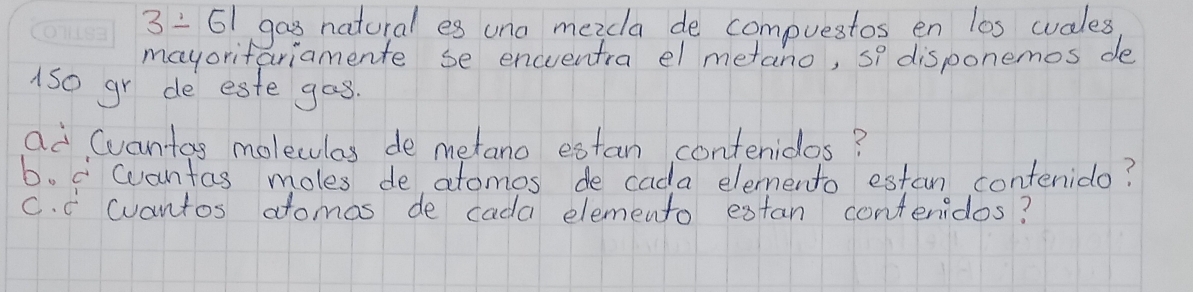 3- El gas natural es una mezcla de compuestos en los cuales,
mayoritariamente se encuentra el metano, si disponemos de
150 gr de este gas.
a. ¿Cuantas moleculas de metano estan contenidos?
b. ¿ Cuantas moles de atomos de cada elemento estan contenido?
c. ¿ Cuantos atomos de cada elemento estan contenidos?